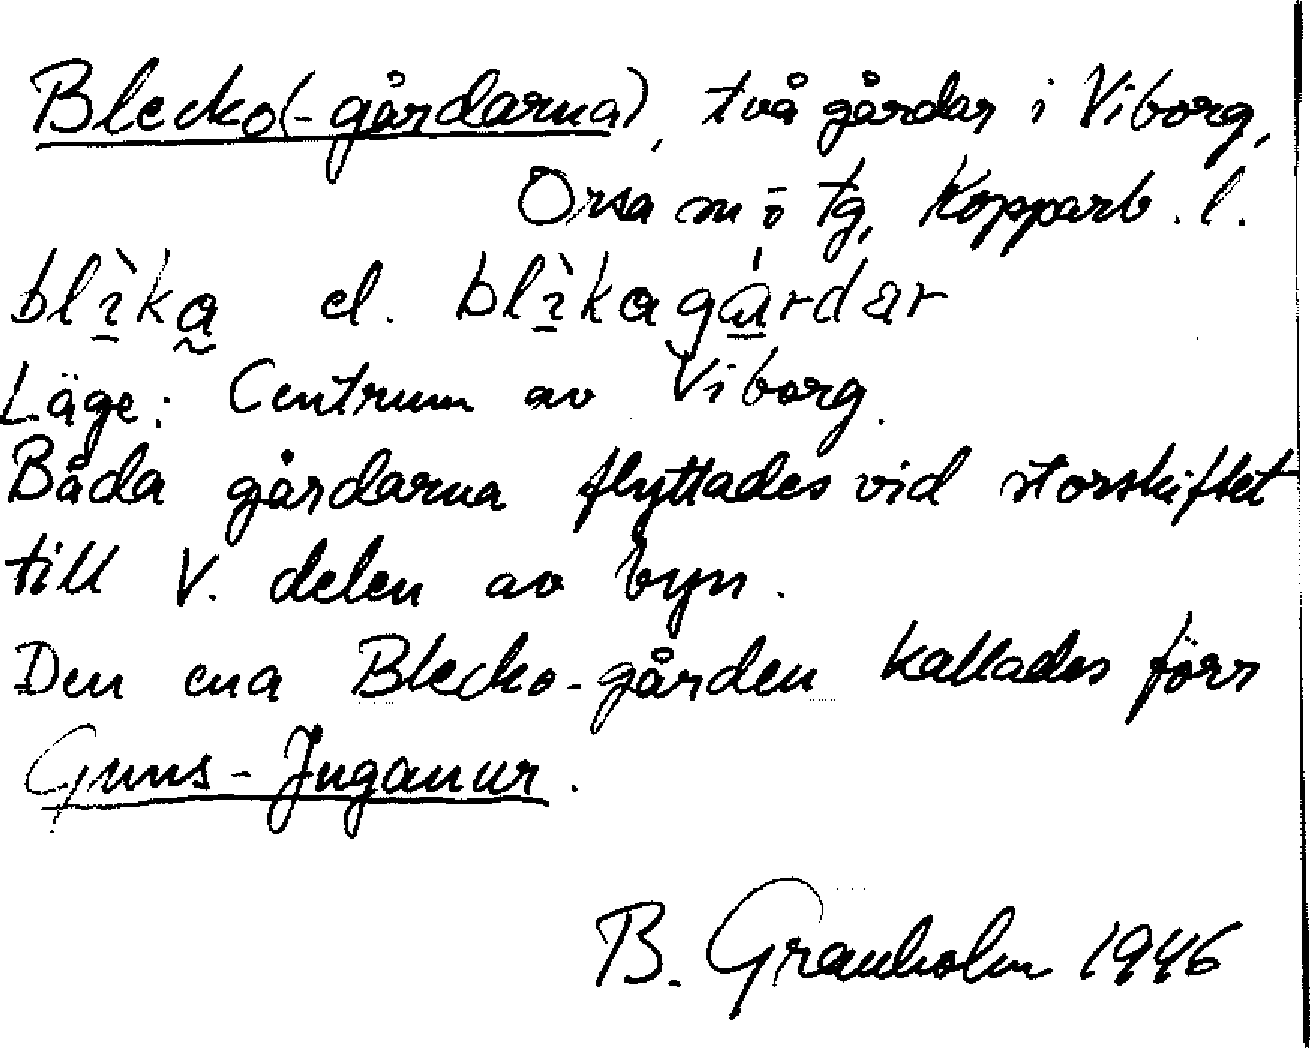 Blecko(-gårdarna), två gårdar i Viborg,
Orsa m ō tg, Kopparb. l.
blìka el. blìkagárdar
Läge: Centrum av Viborg.
Båda gårdarna flyttades vid storskiftet
till V. delen av byn.
Den ena Blecko-gården kallades förr
Guns-Juganur.
B. Granholm 1946